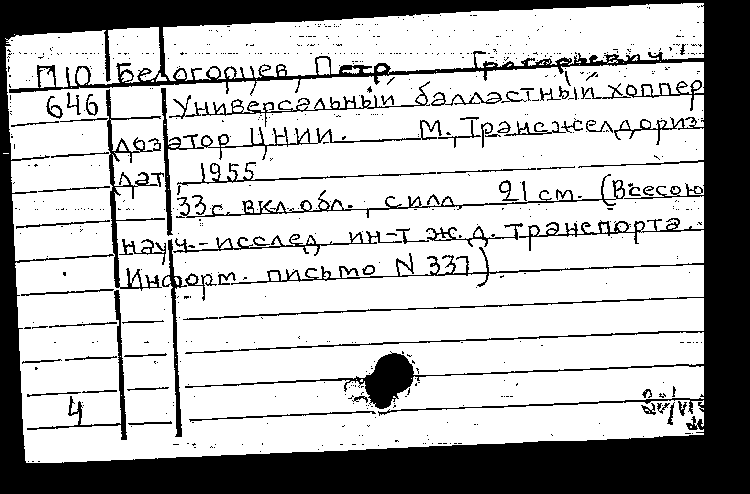 П10 Белогорцев, Петр Григорьевич
646 Универсальный балластный хоппер
дозатор ЦНИИ. М., Трансжелдориз-
дат, 1955
33 с. вкл. обл., с илл. 21 см. (Всесоюз
науч.-исслед. ин-т ж.д. транспорта.
Информ. письмо N 337)
4